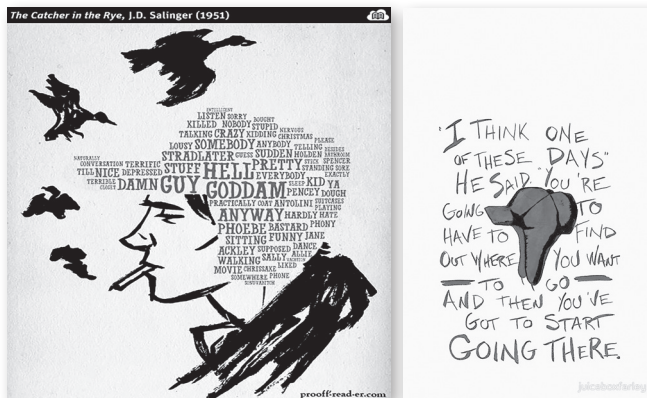 The Catcher in the Rye, J.D. Salinger (1951)
INTELLIGENT
LISTEN SORRY BOUGHT
KILLED NOBODY STUPID NERVOUS
TALKING CRAZY KIDDING CHRISTMAS PLEASE
LOUSY SOMEBODY ANYBODY TELLING BESIDES
STRADLATER GUESS SUDDEN HOLDEN BATHROOM
NATURALLY CONVERSATION TERRIFIC STUFF HELL PRETTY STICK SPENCER
STANDING SORE
TILL NICE DEPRESSED EVERYBODY EXACTLY
TERRIBLE CLOSET DAMN GUY GODDAM SLEEP KID YA
PENCEY DOUGH
PRACTICALLY COAT ANTOLINI SUITCASES
PLAYING
ANYWAY HARDLY HATE
PHOEBE BASTARD PHONY
SITTING FUNNY JANE
ACKLEY SUPPOSED DANCE
WALKING SALLY ALLIE
MOVIE CHRISSAKE LIKED
SOMEWHERE PHONE
CONVERSATION
prooff-read-er.com
"I THINK ONE
OF THESE DAYS"
HE SAID "YOU'RE
GOING TO
HAVE TO FIND
OUT WHERE YOU WANT
TO GO
AND THEN YOU'VE
GOT TO START
GOING THERE.
juiceboxfarley